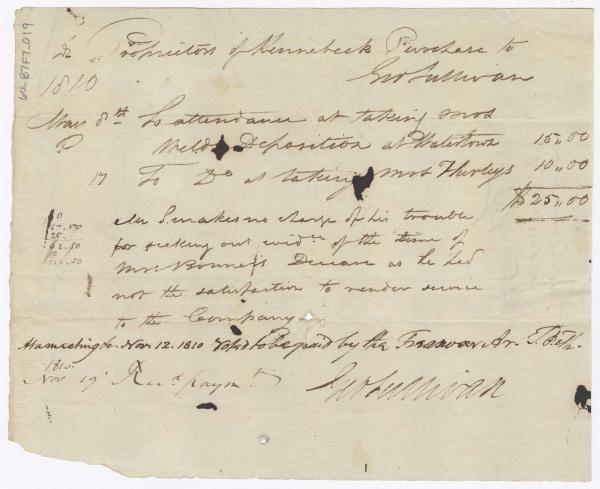 60-87F7.019
Dr Proprietors of Kennebeck Purchase to
Geo Sullivan
1810
May 8th To attendance at taking Mrs
Welds Deposition at Watertown 15,,00
17 To Do at taking Mrs Hurleys 10,,00
$25,,00
Mr S. makes no charge of his trouble
for seeking out evidce of the time of
Mrs Bonners Decease as he had
not the satisfaction to render service
to the Company
At a meeting Nov. 12. 1810 Voted to be paid by the Treasurer
1810
Nov 19 Recd paymt
Geo Sullivan